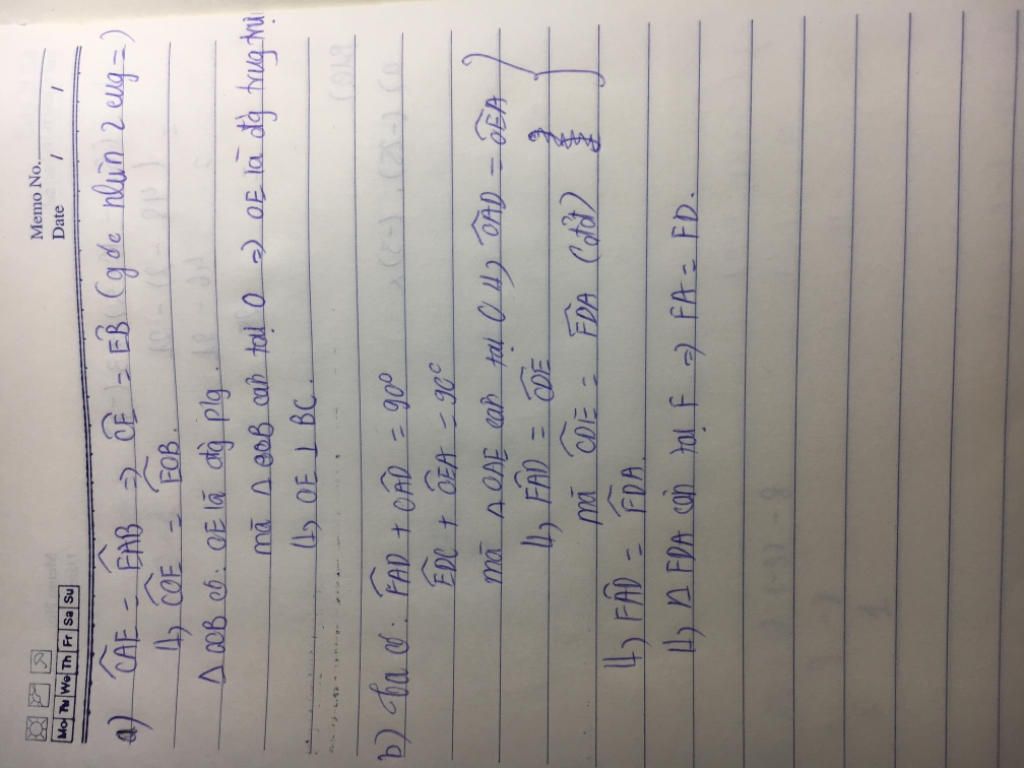 Memo No.
Date / /
Mo Tu We Th Fr Sa Su
a) CAE = EAB => CE = EB (góc nhìn 2 cung =)
↳ COE = EOB.
Δ COB có: OE là đg p/g.
mà Δ COB cân tại O => OE là đg trung trực
↳ OE ⊥ BC.
b) Ta có: FAD + OAD = 90°
EDC + OEA = 90°
mà Δ OAE cân tại O ↳ OAD = OEA }
↳ FAD = CDE
mà CDE = FDA (đđ)
↳ FAD = FDA.
↳ Δ FDA cân tại F => FA = FD.